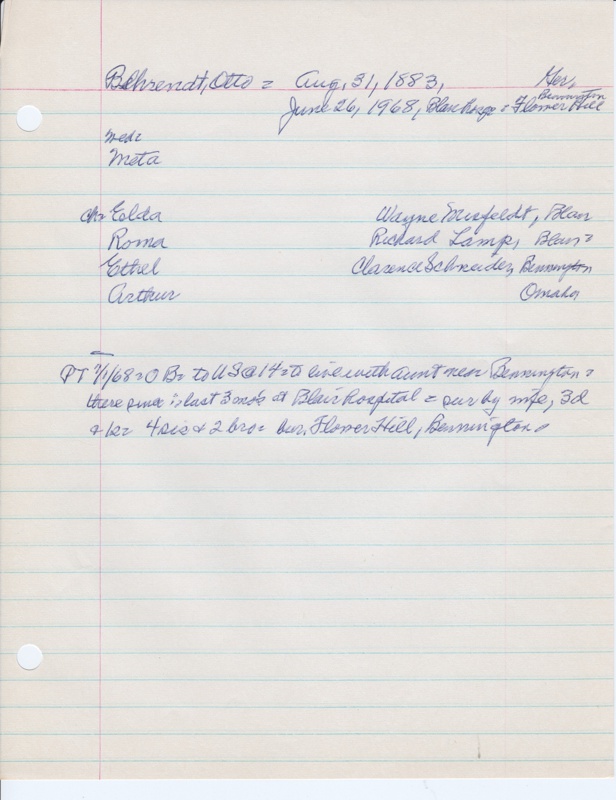 Behrendt, Otto = Aug. 31, 1883, Ger,
June 26, 1968, Blair Hosp = Bennington Flower Hill
med=
Meta
ch= Eelda Wayne Misfeldt, Blair
Roma Richard Lamp, Blair =
Ethel Clarence Schneider, Bennington
Arthur Omaha
PT 7/1/68 = O B = to US @ 14 = to live with aunt near Bennington =
there since = last 3 mos at Blair Hospital = sur by wife, 3d
& 1s = 4 sis & 2 bro = bur. Flower Hill, Bennington